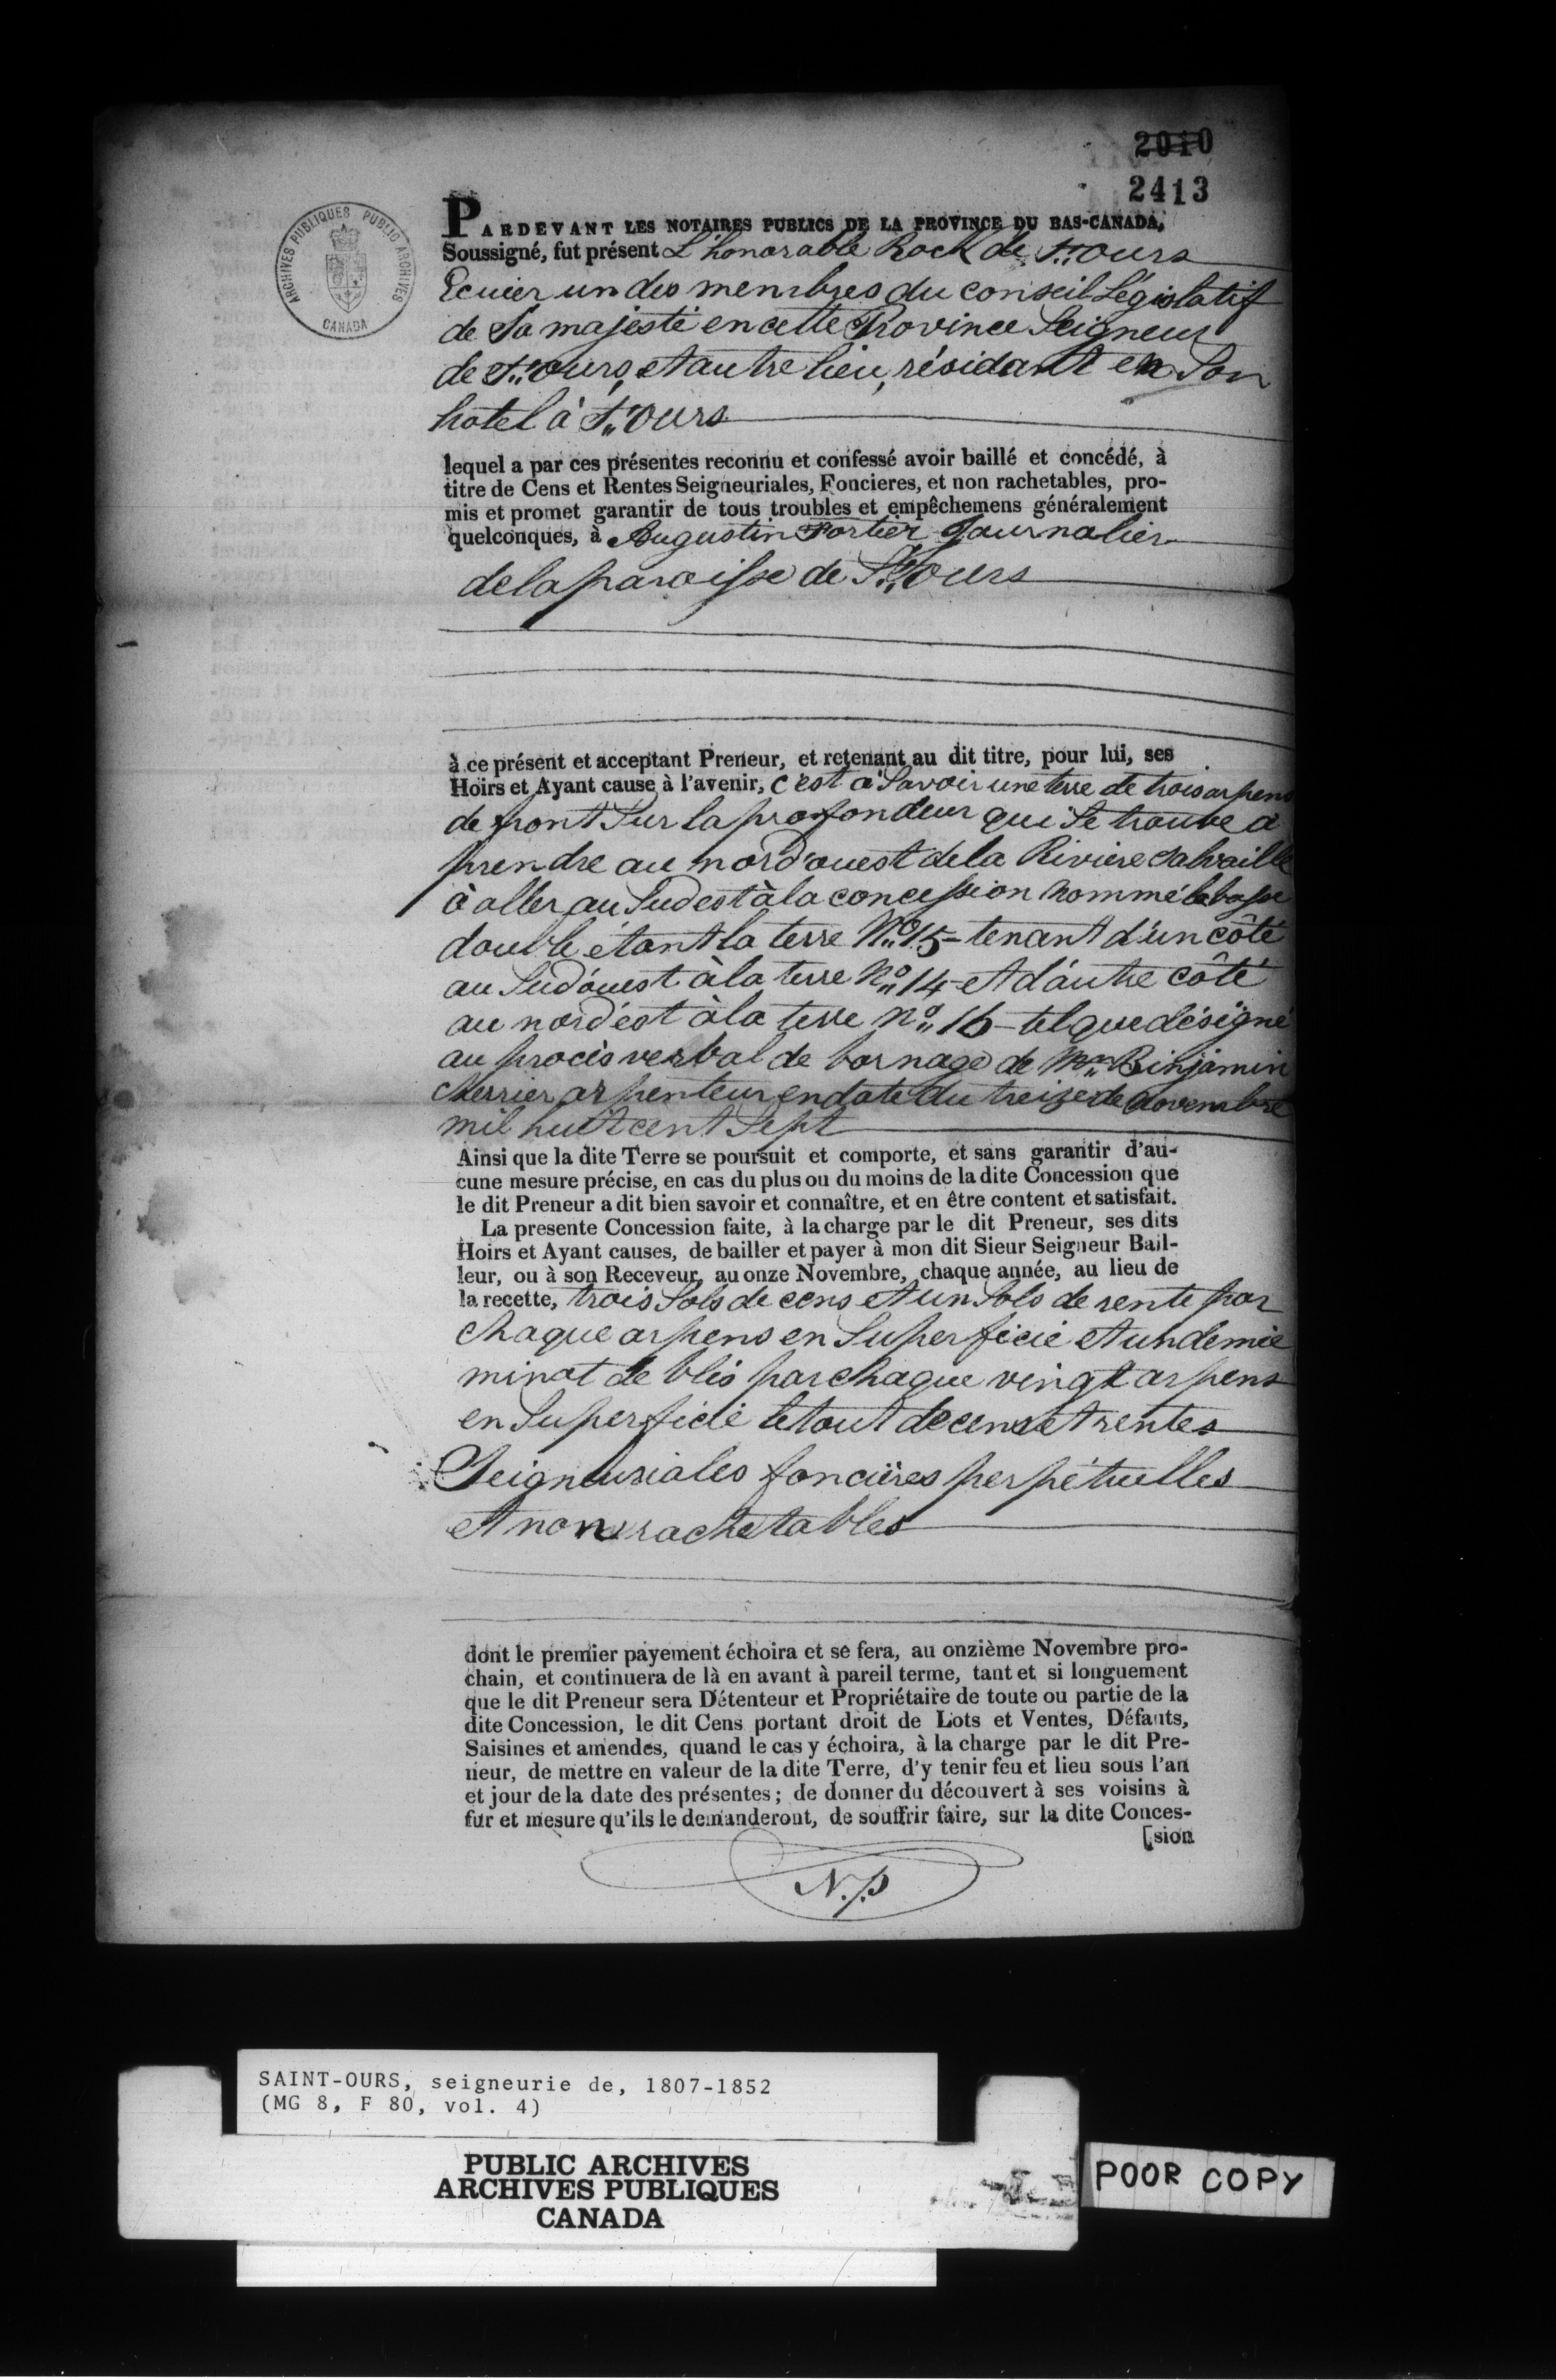 2010
2413
ARCHIVES PUBLIQUES PUBLIC ARCHIVES
CANADA
PARDEVANT LES NOTAIRES PUBLICS DE LA PROVINCE DU BAS-CANADA,
Soussigné, fut présent L'honorable Rock de St. Ours
Ecuier un des membres du conseil Législatif
de Sa majesté en cette Province Seigneur
de St. Ours, et autre lieu, résidant en Son
hotel à St. Ours
lequel a par ces présentes reconnu et confessé avoir baillé et concédé, à
titre de Cens et Rentes Seigneuriales, Foncieres, et non rachetables, pro-
mis et promet garantir de tous troubles et empêchemens généralement
quelconques, à Augustin Fortier Journalier
de la paroisse de St. Ours
à ce présent et acceptant Preneur, et retenant au dit titre, pour lui, ses
Hoirs et Ayant cause à l'avenir, C'est a Savoir une terre de trois arpens
de front Sur la profondeur qui Se trouve à
prendre au nord'ouest de la Riviere Salvaille
à aller au Sudest à la concession nommé la basse
double étant la terre No. 15 - tenant d'un côté
au Sud'ouest à la terre No. 14 - et d'autre côté
au nord'est à la terre No. 16 - tel que désigné
au procès verbal de bornage de Mr. Binjamin
Cherrier arpenteur en date du treize de Novembre
mil huit cent Sept
Ainsi que la dite Terre se poursuit et comporte, et sans garantir d'au-
cune mesure précise, en cas du plus ou du moins de la dite Concession que
le dit Preneur a dit bien savoir et connaître, et en être content et satisfait.
La presente Concession faite, à la charge par le dit Preneur, ses dits
Hoirs et Ayant causes, de bailler et payer à mon dit Sieur Seigneur Bail-
leur, ou à son Receveur, au onze Novembre, chaque année, au lieu de
la recette, trois Sols de cens et un Sols de rente par
chaque arpens en Superficie et un demie
minot de blés par chaque vingt arpens
en Superficie le tout de cens et rentes
Seigneuriales foncières perpétuelles
et non rachetables
dont le premier payement échoira et se fera, au onzième Novembre pro-
chain, et continuera de là en avant à pareil terme, tant et si longuement
que le dit Preneur sera Détenteur et Propriétaire de toute ou partie de la
dite Concession, le dit Cens portant droit de Lots et Ventes, Défauts,
Saisines et amendes, quand le cas y échoira, à la charge par le dit Pre-
neur, de mettre en valeur de la dite Terre, d'y tenir feu et lieu sous l'an
et jour de la date des présentes; de donner du découvert à ses voisins à
fur et mesure qu'ils le demanderont, de souffrir faire, sur la dite Conces-
[sion
N.P
SAINT-OURS, seigneurie de, 1807-1852
(MG 8, F 80, vol. 4)
PUBLIC ARCHIVES
ARCHIVES PUBLIQUES
CANADA
POOR COPY